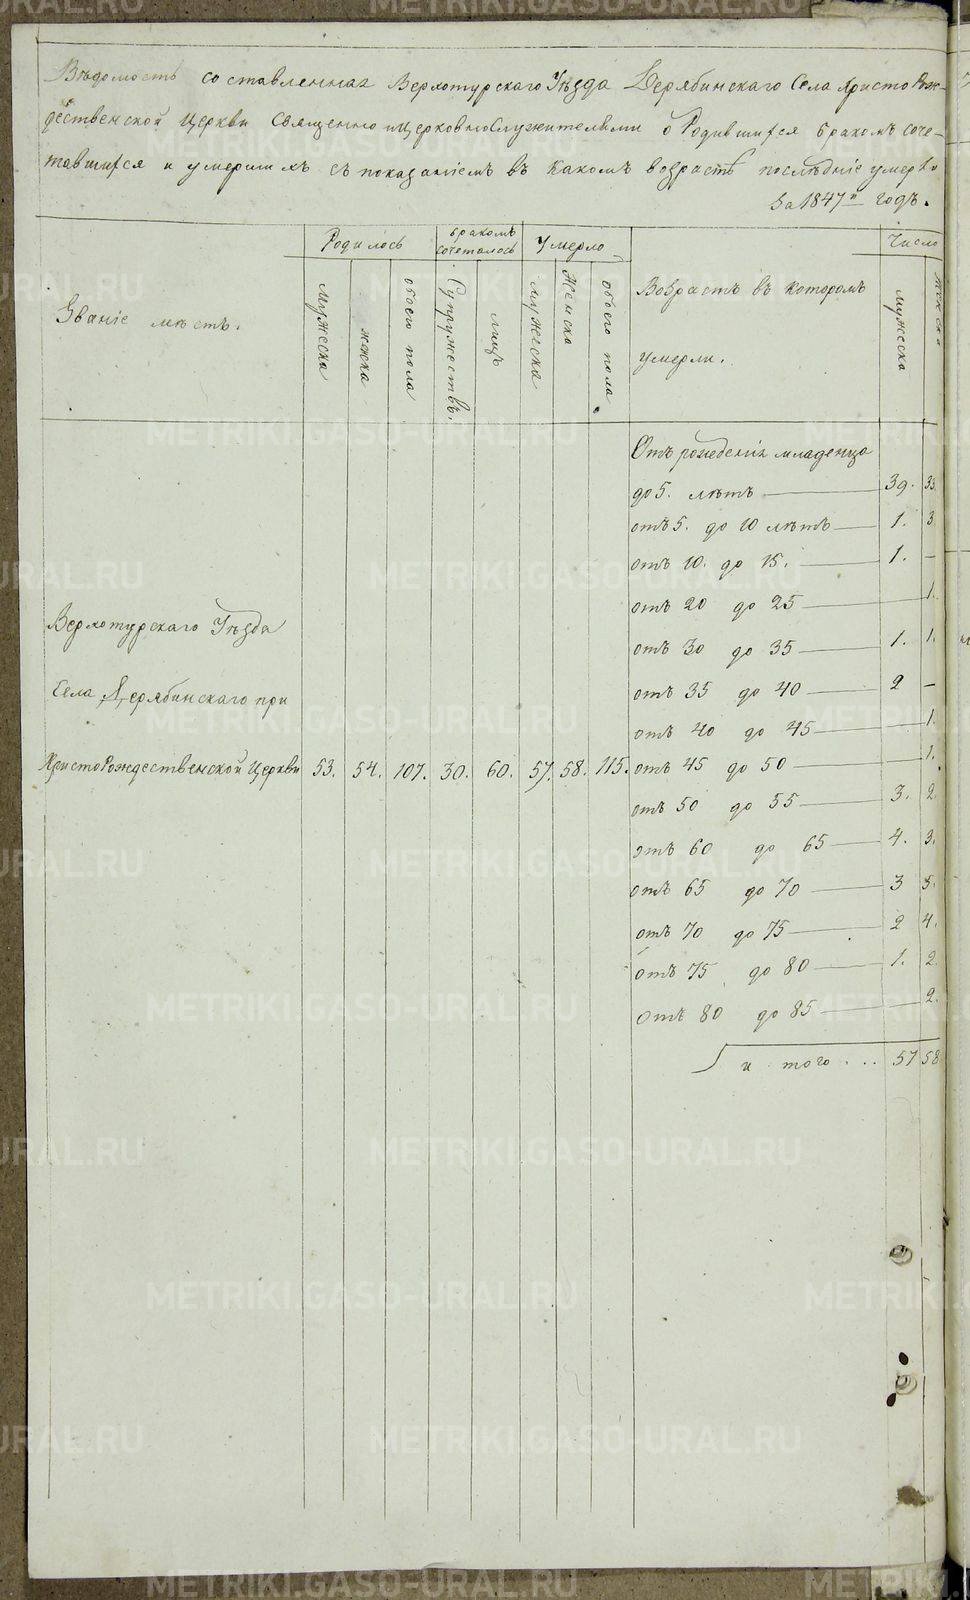 Вѣдомость составленная Верхотурскаго Уѣзда Дерябинскаго Села Христо Рож-
дественской Церкви священно и Церковнослужителями о Родившихся бракомъ соче-
тавшихся и умершихъ съ показаніемъ въ какомъ возрастѣ послѣдніе умерло
За 1847й годъ.
Званіе мѣстъ.
Родилось
бракомъ сочеталось
Умерло
Возрастъ въ которомъ
умерли.
Число
мужеска
женска
обоего пола
Супружествъ.
лицъ
мужеска
Женска
обоего пола
мужеска
женска
Отъ рожденія младенца
до 5. лѣтъ 39. 33.
отъ 5. до 10 лѣтъ 1. 3
отъ 10. до 15. 1. –
отъ 20 до 25 1.
отъ 30 до 35 1. 1.
отъ 35 до 40 2 –
отъ 40 до 45 1.
отъ 45 до 50 1.
отъ 50 до 55 3. 2.
отъ 60 до 65 4. 3.
отъ 65 до 70 3 5.
отъ 70 до 75 2 4.
отъ 75 до 80 1. 2
отъ 80 до 85 2.
и того ... 57 58
Верхотурскаго Уѣзда
Села Дерябинскаго при
Христо Рождественской Церкви 53. 54. 107. 30. 60. 57. 58. 115.
METRIKI.GASO-URAL.RU